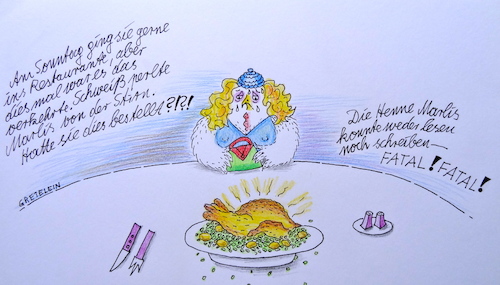 Am Sonntag ging sie gerne
ins Restaurante, aber
dies mal war es das
verkehrte. Schweiß perlte
Marlis von der Stirn.
Hatte sie dies bestellt?!?!
Die Henne Marlis
konnte weder lesen
noch schreiben—
FATAL! FATAL!
GRETELEIN